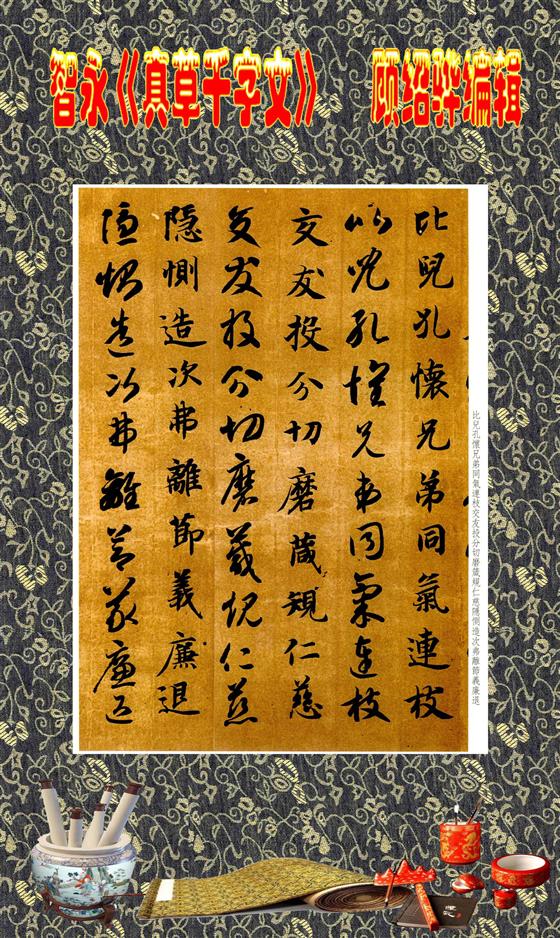 智永《真草千字文》 顾绍骅编辑
比兒孔懷兄弟同氣連枝交友投分切磨箴規仁慈隱惻造次弗離節義廉退
比兒孔懷兄弟同氣連枝
比兒孔懷兄弟同氣連枝
交友投分切磨箴規仁慈
交友投分切磨箴規仁慈
隱惻造次弗離節義廉退
隱惻造次弗離節義廉退